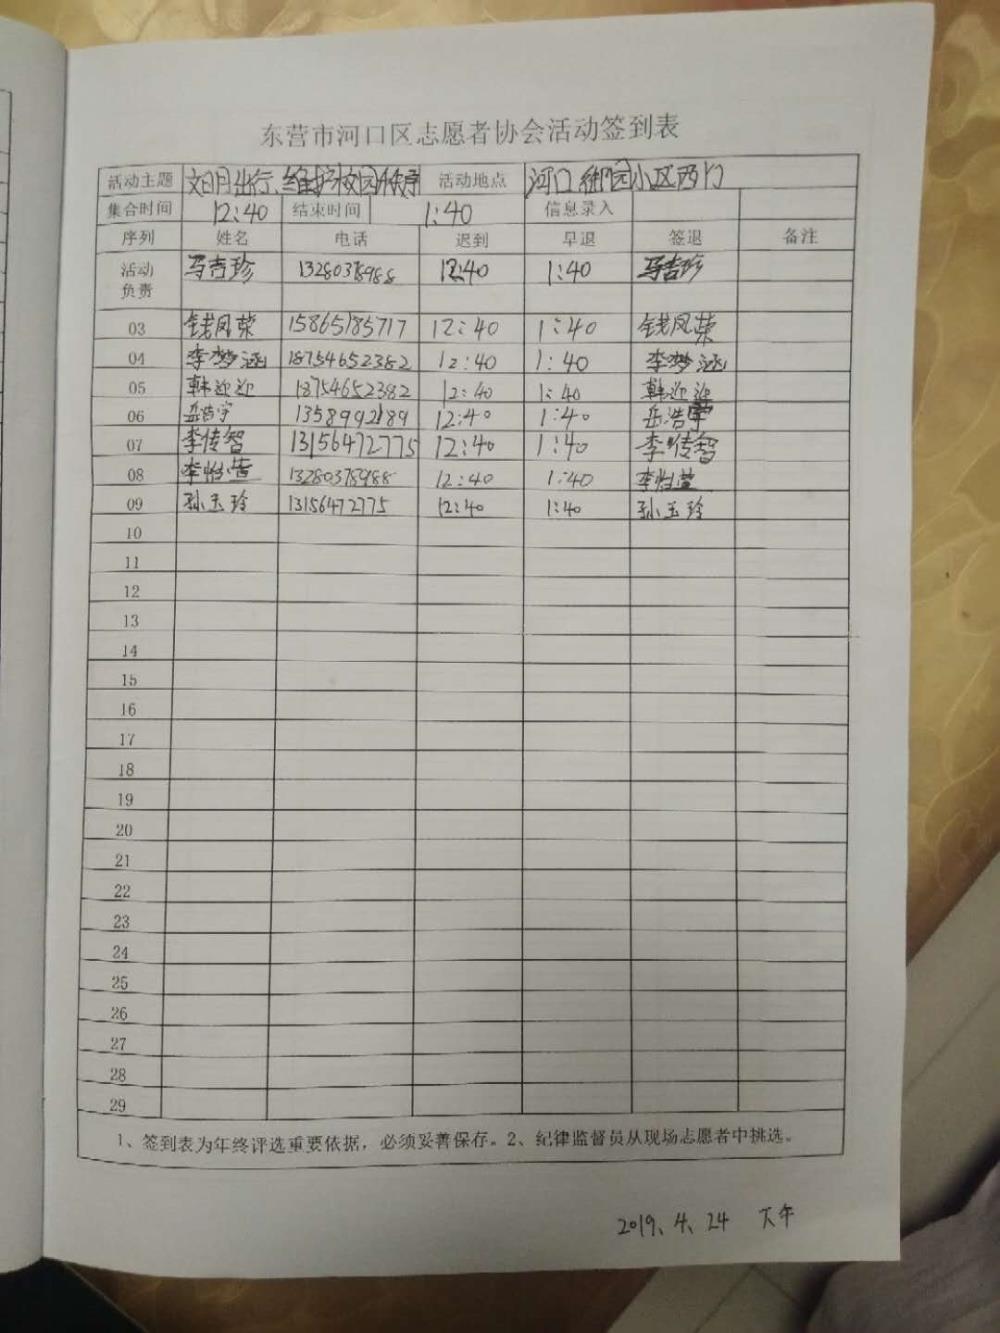 东营市河口区志愿者协会活动签到表
活动主题 文明出行、维护校园秩序 活动地点 河口 园小区西门
集合时间 12:40 结束时间 1:40 信息录入
序列 姓名 电话 迟到 早退 签退 备注
活动负责 马吉珍 13280378988 12:40 1:40 马吉珍
03 钱凤荣 15865185717 12:40 1:40 钱凤荣
04 李梦涵 18754652382 12:40 1:40 李梦涵
05 韩迎迎 18754652382 12:40 1:40 韩迎迎
06 岳浩宇 1358992189 12:40 1:40 岳浩宇
07 李传智 13156472775 12:40 1:40 李传智
08 李怡萱 13280378988 12:40 1:40 李怡萱
09 孙玉玲 13156472775 12:40 1:40 孙玉玲
10
11
12
13
14
15
16
17
18
19
20
21
22
23
24
25
26
27
28
29
1、签到表为年终评选重要依据，必须妥善保存。2、纪律监督员从现场志愿者中挑选。
2019.4.24 下午